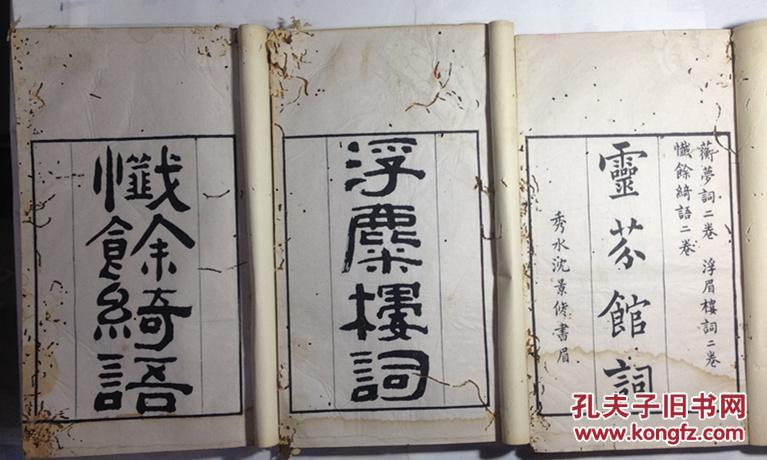 蘅夢詞二卷 浮眉樓詞二卷
懺餘綺語二卷
靈芬館詞
秀水沈景修書眉
浮麋樓詞
懺餘綺語
孔夫子旧书网
www.kongfz.com